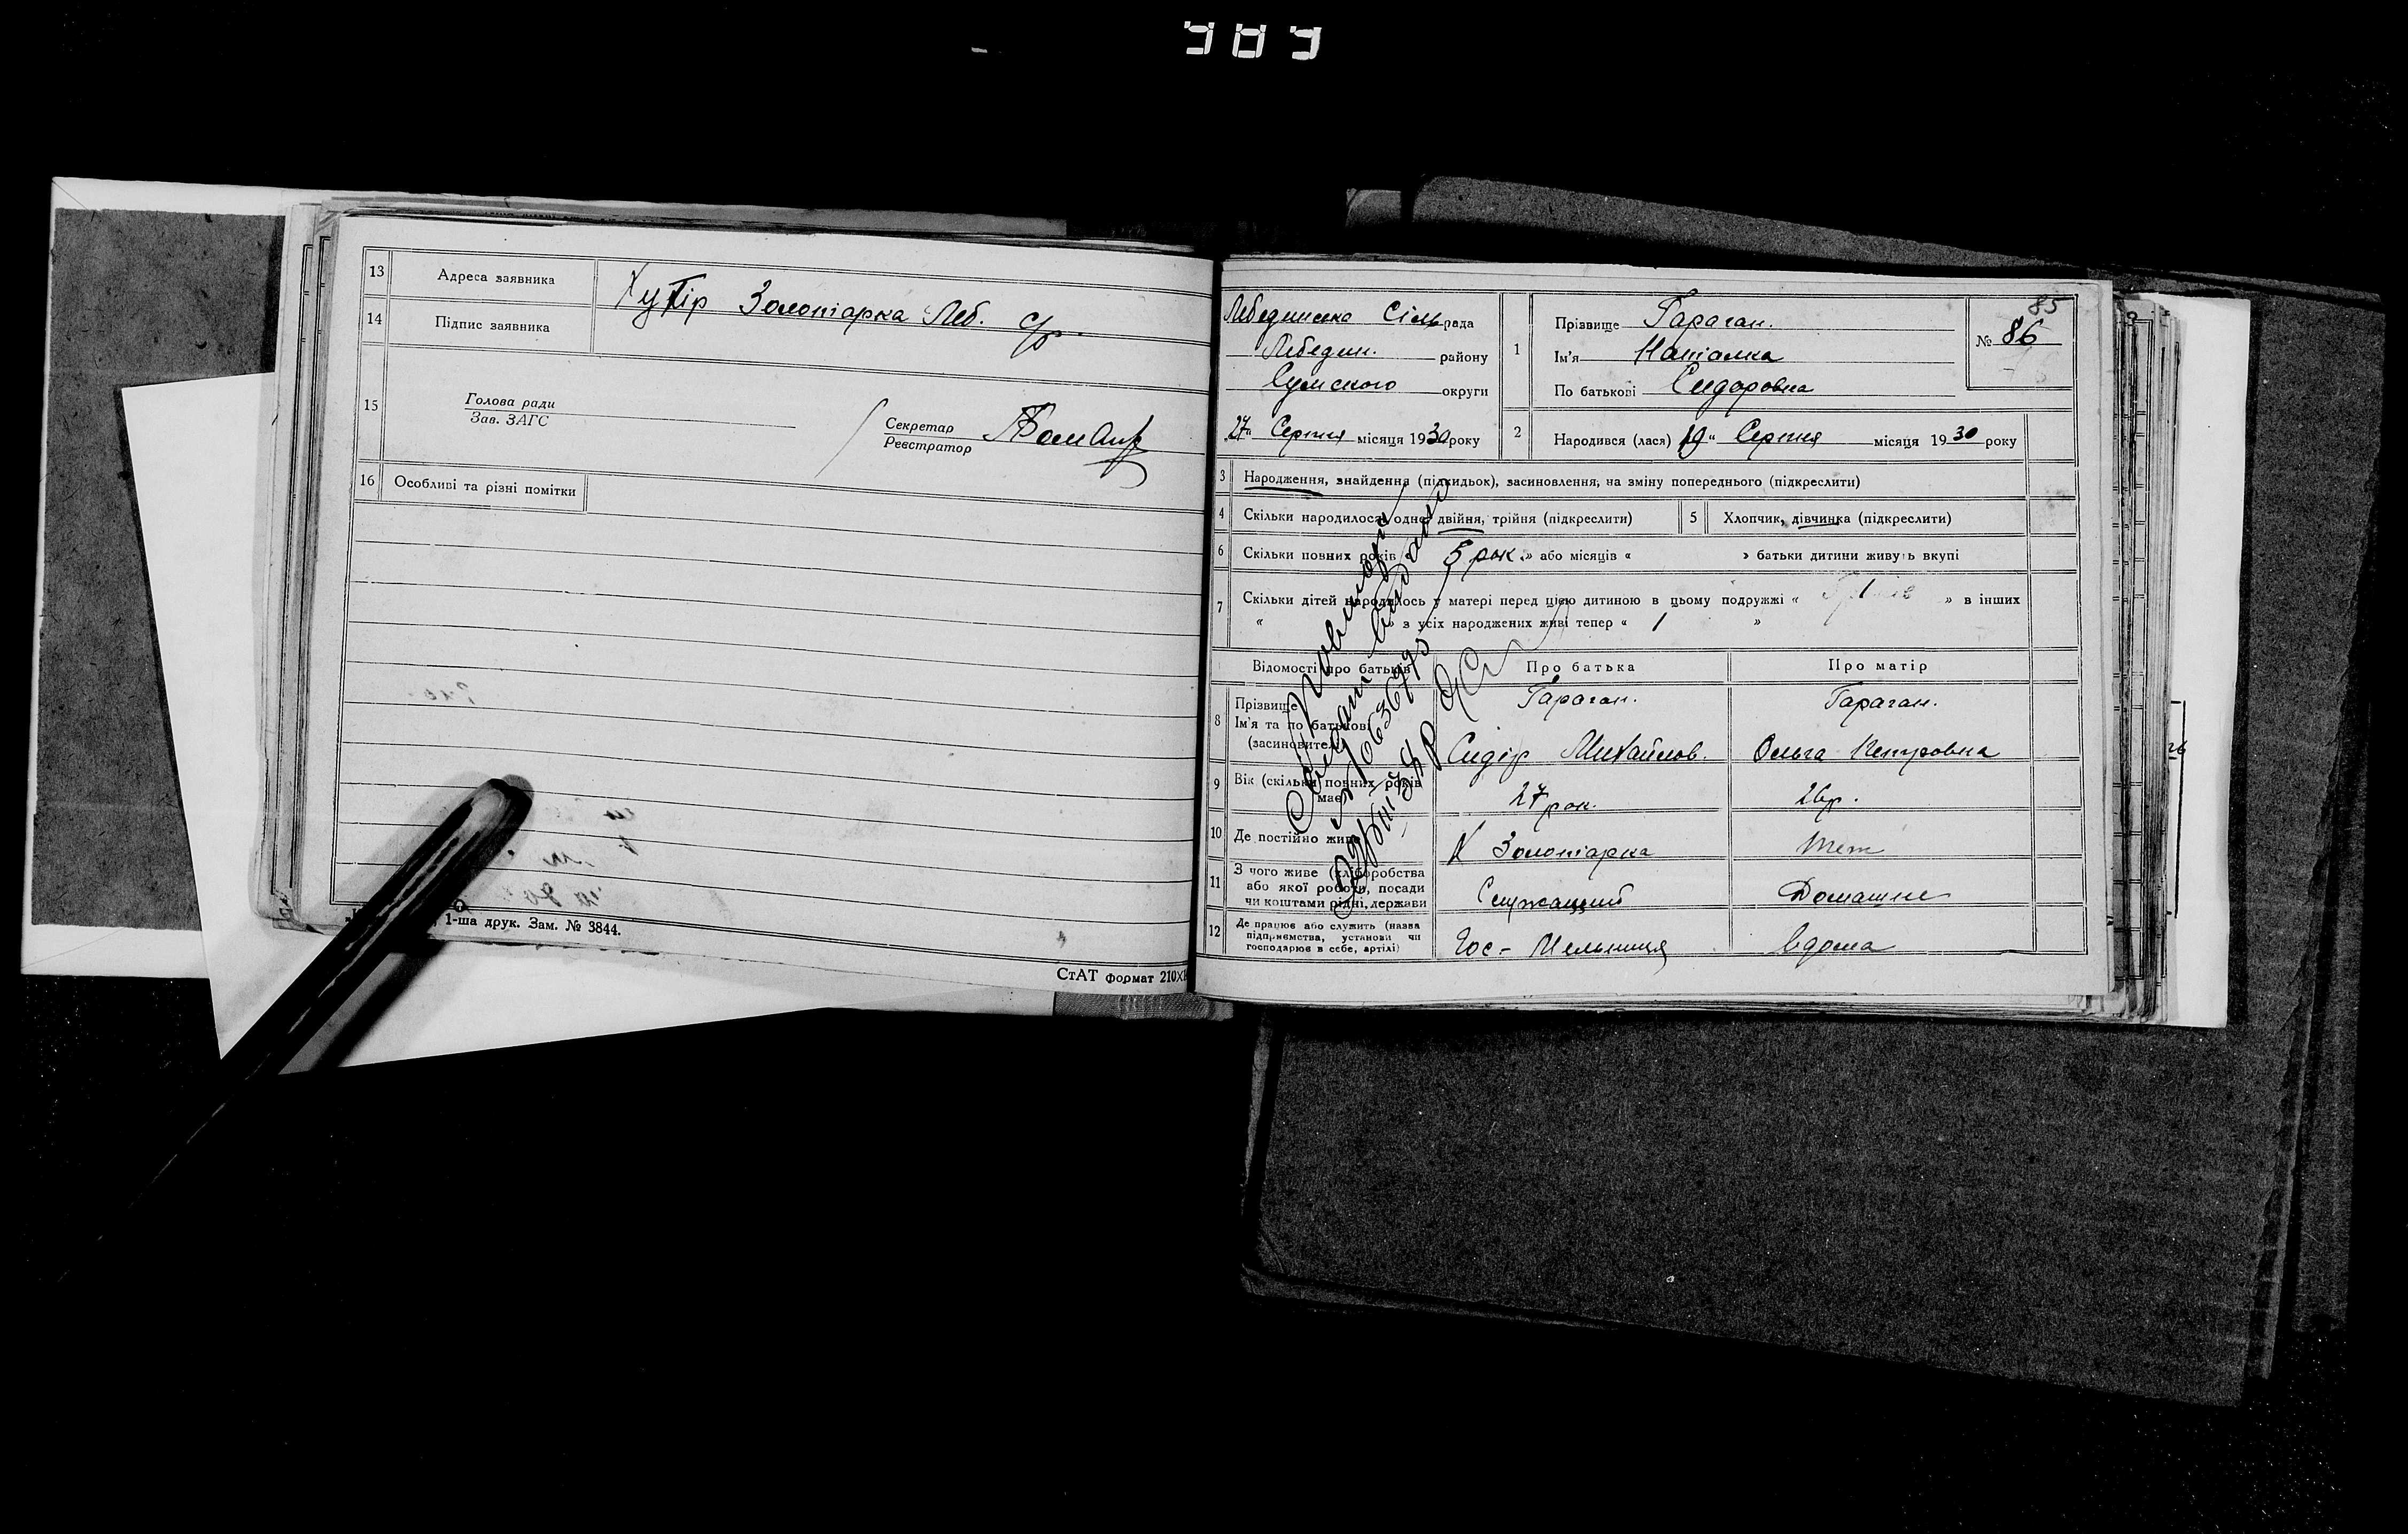 13 Адреса заявника Хутір Золотарка Леб. с/р.
14 Підпис заявника
15 Голова ради
Зав. ЗАГС
Секретар
Реєстратор
16 Особливі та різні помітки
1-ша друк. Зам. № 3844.
СтАТ формат 210Х
Лебединська Сільрада
Лебедин. району
Сумського округи
27" Серпня місяця 1930 року
1 Прізвище Гараган.
Ім'я Наталка
По батькові Сидоровна
85
№ 86
2 Народився (лася) 19" Серпня місяця 1930 року
3 Народження, знайдення (підкидьок), засиновлення, на зміну попереднього (підкреслити)
4 Скільки народилося: одне, двійня, трійня (підкреслити)
5 Хлопчик, дівчинка (підкреслити)
6 Скільки повних років « 5 рок. » або місяців « » батьки дитини живуть вкупі
7 Скільки дітей народилось у матері перед цією дитиною в цьому подружжі « » в інших
« » з усіх народжених живі тепер « 1 »
Відомості про батьків Про батька Про матір
8 Прізвище Гараган. Гараган.
Ім'я та по батькові
(засиновителі) Сидір Михайлов. Ольга Петровна
9 Вік (скільки повних років
має) 27 рок. 26 р.
10 Де постійно живе Х Золотарка теж
11 З чого живе (хліборобства
або якої роботи, посади
чи коштами рідні, держави Служащий Домашнє
12 Де працює або служить (назва
підприємства, установи чи
господарює в себе, артілі) Гос-Мельниця вдома
Повторн
видано